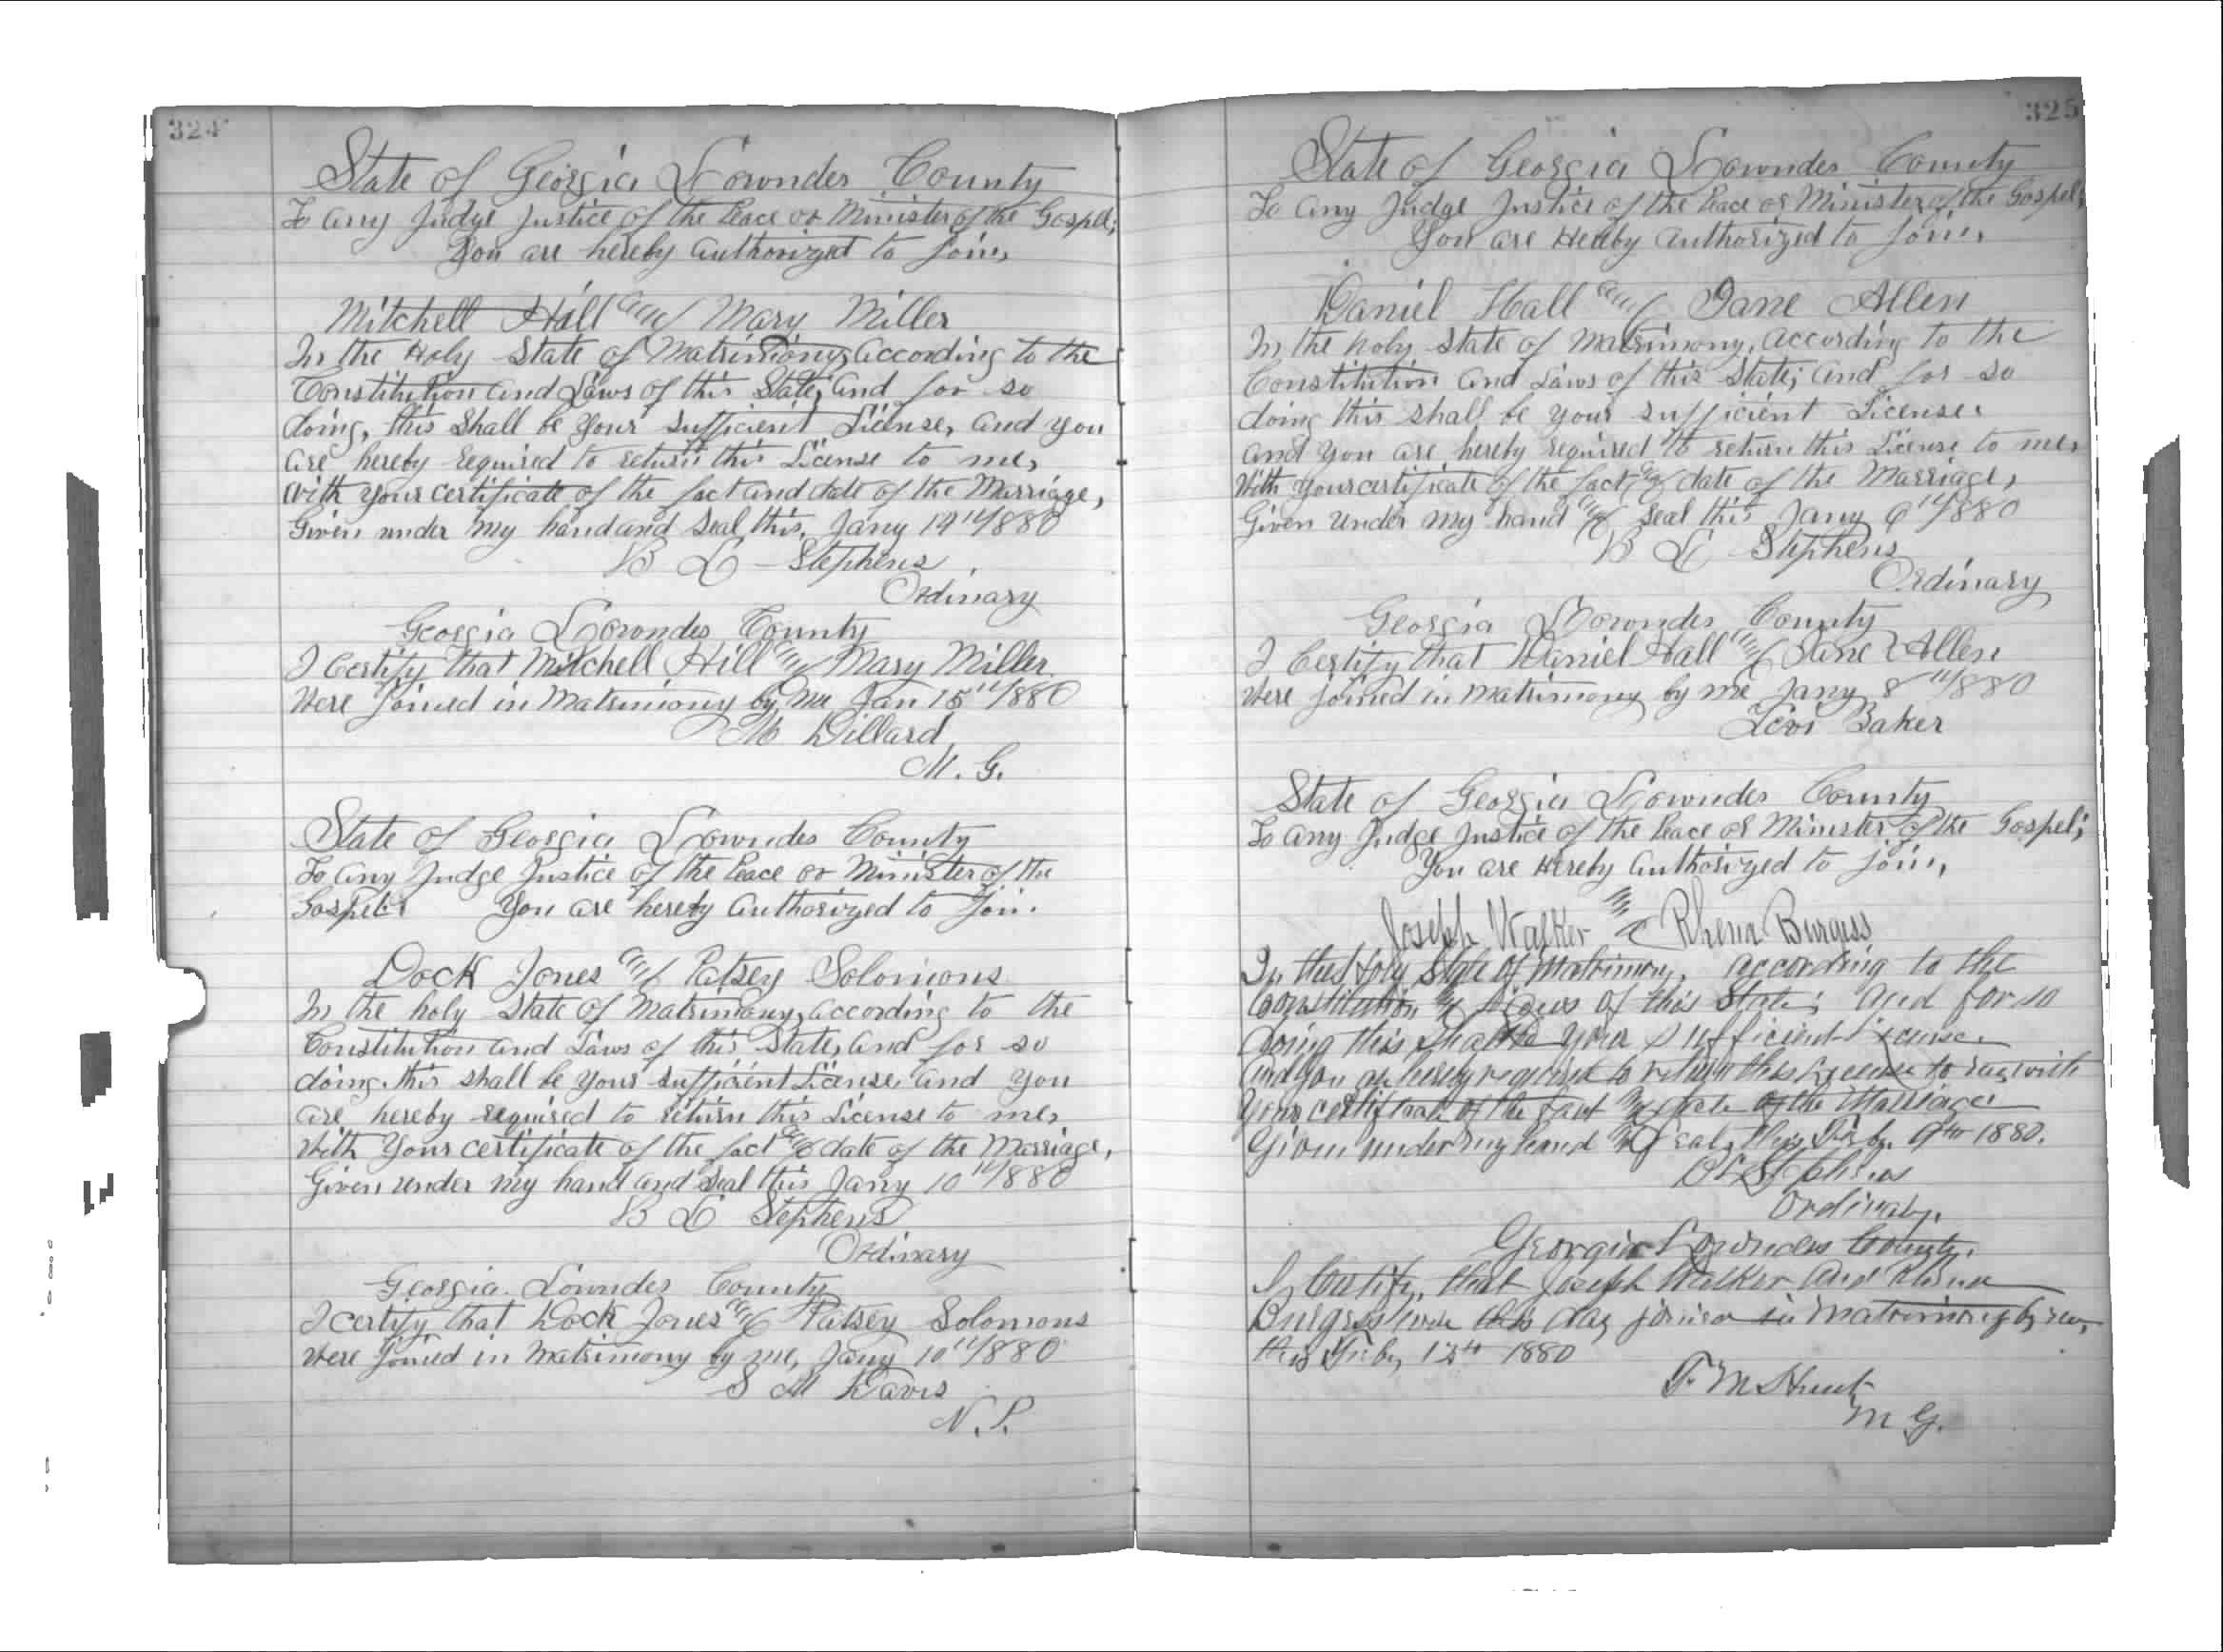 324
State of Georgia Lowndes County
To any Judge Justice of the Peace or Minister of the Gospel;
You are hereby authorized to join,
Mitchell Hill and Mary Miller
In the Holy State of Matrimony, according to the
Constitution and Laws of this State, and for so
doing, this shall be your sufficient License, and you
are hereby required to return this License to me,
with your certificate of the fact and date of the Marriage,
Given under my hand and seal this, Jany 14th 1880
B L Stephens
Ordinary
Georgia Lowndes County
I Certify that Mitchell Hill and Mary Miller
were joined in Matrimony by me Jan 15th 1880
M Dillard
M. G.
State of Georgia Lowndes County
To any Judge Justice of the Peace or Minister of the
Gospel: You are hereby authorized to join.
Dock Jones and Patsey Solomons
In the holy State of Matrimony, according to the
Constitution and Laws of this State, and for so
doing this shall be your sufficient License, and you
are hereby required to return this License to me,
with your certificate of the fact and date of the Marriage,
Given under my hand and seal this Jany 10th 1880
B L Stephens
Ordinary
Georgia. Lowndes County
I certify that Dock Jones and Patsey Solomons
were joined in Matrimony by me, Jany 10th 1880
S M Davis
N. P.
325
State of Georgia Lowndes County
To any Judge Justice of the Peace or Minister of the Gospel;
You are Hereby authorized to join,
Daniel Hall and Jane Allen
In the holy State of Matrimony, according to the
Constitution and Laws of this State; and for so
doing this shall be your sufficient License.
and you are hereby required to return this License to me,
With your certificate of the fact and date of the Marriage,
Given under my hand and seal this Jany 6th 1880
B L Stephens
Ordinary
Georgia Lowndes County
I Certify that Daniel Hall and Jane Allen
were joined in Matrimony by me Jany 8th 1880
Levi Baker
State of Georgia Lowndes County
To any Judge Justice of the Peace or Minister of the Gospel;
You are Hereby authorized to join,
Joseph Walker and Rhena Burgess
In the Holy State of Matrimony, according to the
Constitution and Laws of this State; and for so
doing this shall be your sufficient License.
And you are hereby required to return this License to me, with
your certificate of the fact and date of the Marriage
Given under my hand and seal, this Feby. 9th 1880.
B L Stephens
Ordinary.
Georgia Lowndes County.
I, Certify, that Joseph Walker and Rhena
Burgess were this day joined in matrimony by me,
this Feby 12th 1880
T. M Hunt
M G.